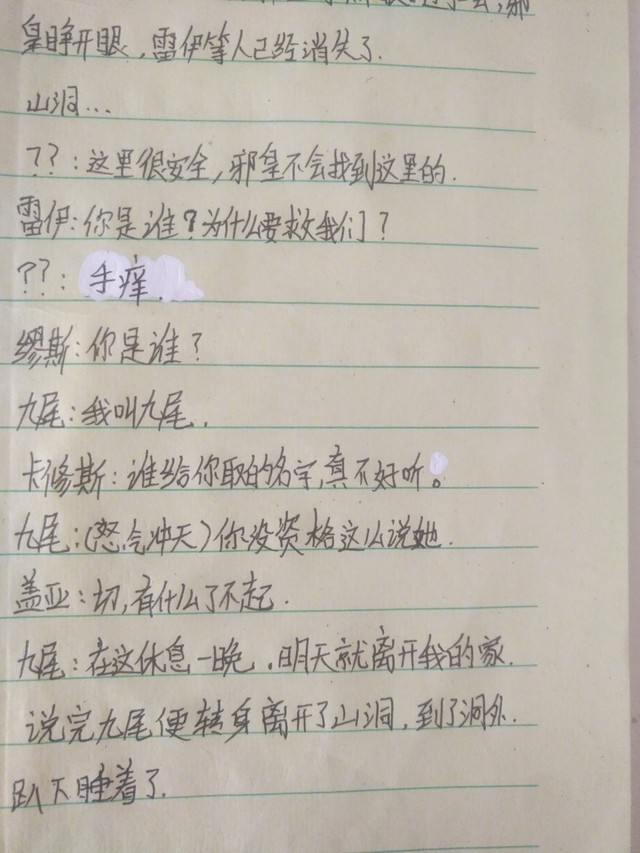 皇睁开眼，雷伊等人已经消失了.
山洞...
??：这里很安全，邪皇不会找到这里的.
雷伊：你是谁？为什么要救我们？
??：手痒.
缪斯：你是谁？
九尾：我叫九尾.
卡修斯：谁给你取的名字，真不好听。
九尾：(怒气冲天)你没资格这么说她.
盖亚：切，有什么了不起.
九尾：在这休息一晚.明天就离开我的家.
说完九尾便转身离开了山洞，到了洞外.
趴下睡着了.